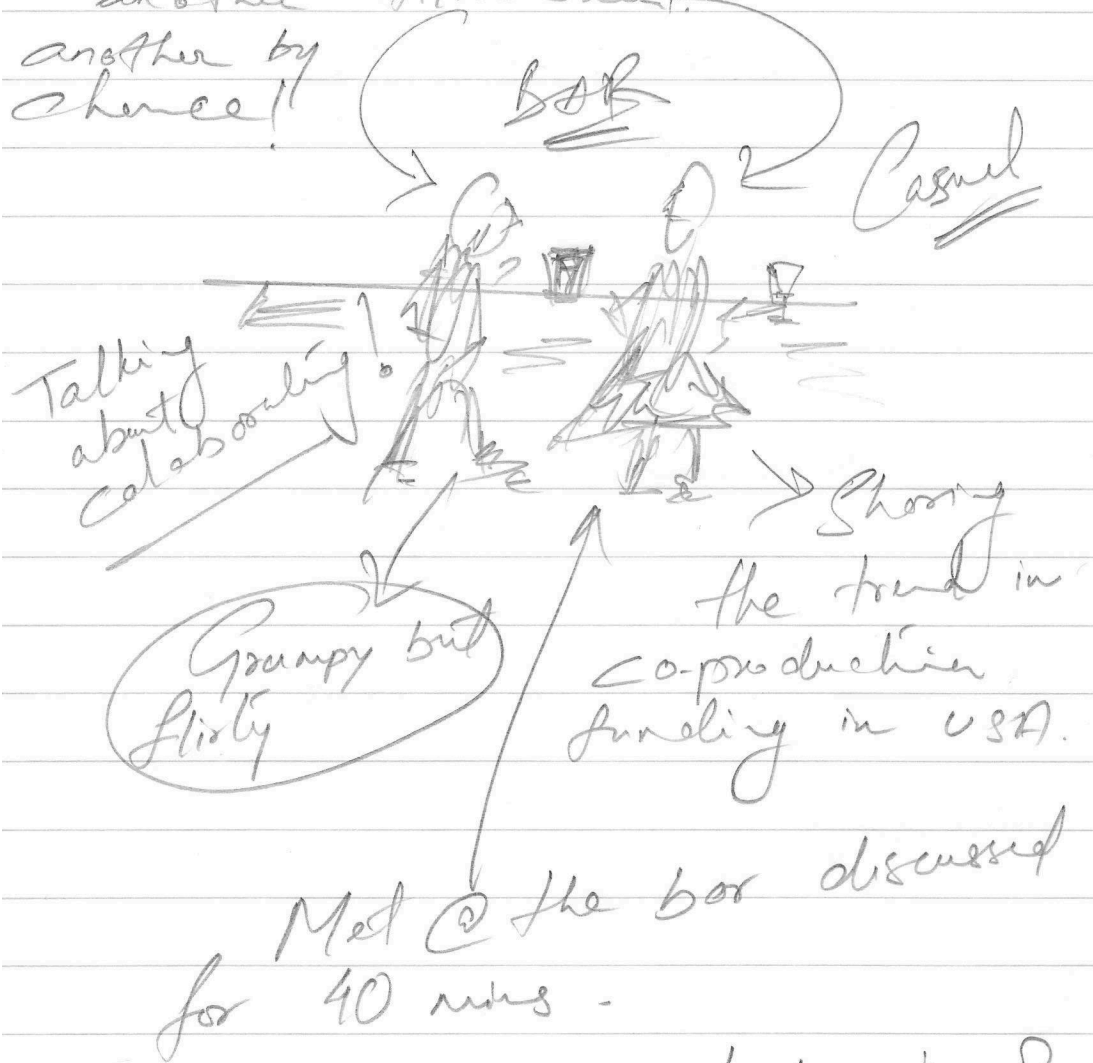 another
another by
chance!
BAR
Casual
Talking
about
colaborating!
Sharing
the trend in
co-production
funding in USA.
Grumpy but
flirty
Met @ the bar discussed
for 40 mins -